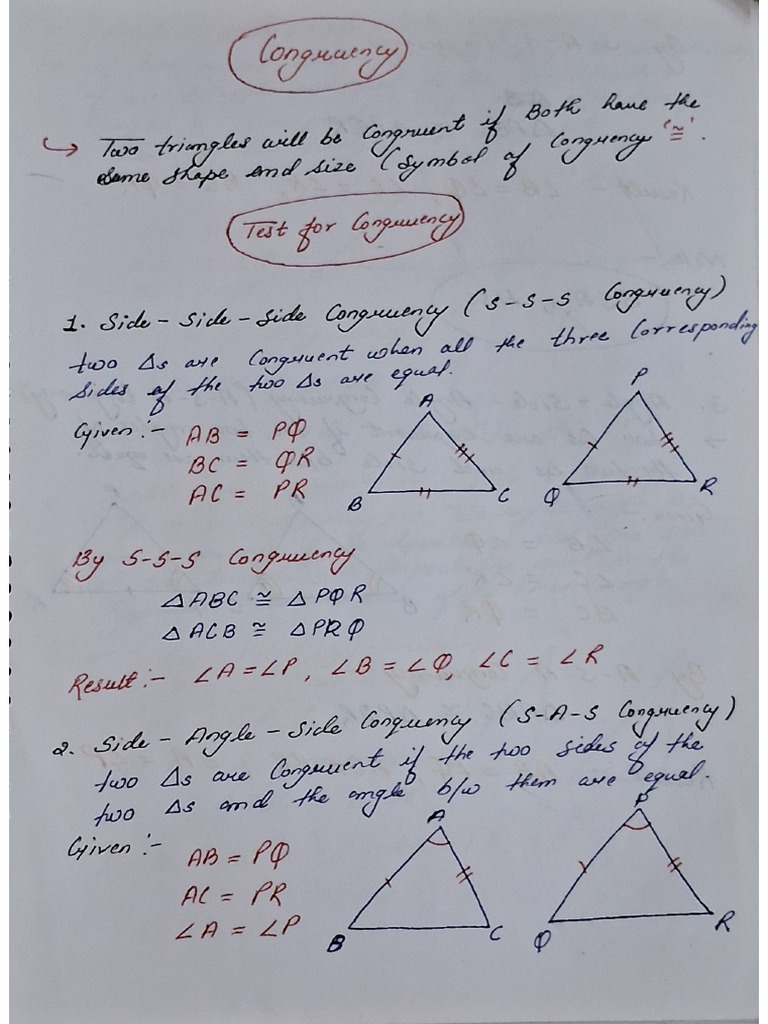 Congruency
↪ Two triangles will be Congruent if Both have the
same shape and size (Symbol of Congruency '≅'.
Test for Congruency
1. Side - Side - Side Congruency (S-S-S Congruency)
two Δs are Congruent when all the three Corresponding
sides of the two Δs are equal.
Given :- AB = PQ
BC = QR
AC = PR
A
B
C
P
Q
R
By S-S-S Congruency
Δ ABC ≅ Δ PQR
Δ ACB ≅ Δ PRQ
Result :- ∠A = ∠P, ∠B = ∠Q, ∠C = ∠R
2. Side - Angle - Side Congruency (S-A-S Congruency)
two Δs are Congruent if the two sides of the
two Δs and the angle b/w them are equal.
Given :- AB = PQ
AC = PR
∠A = ∠P
A
B
C
P
Q
R